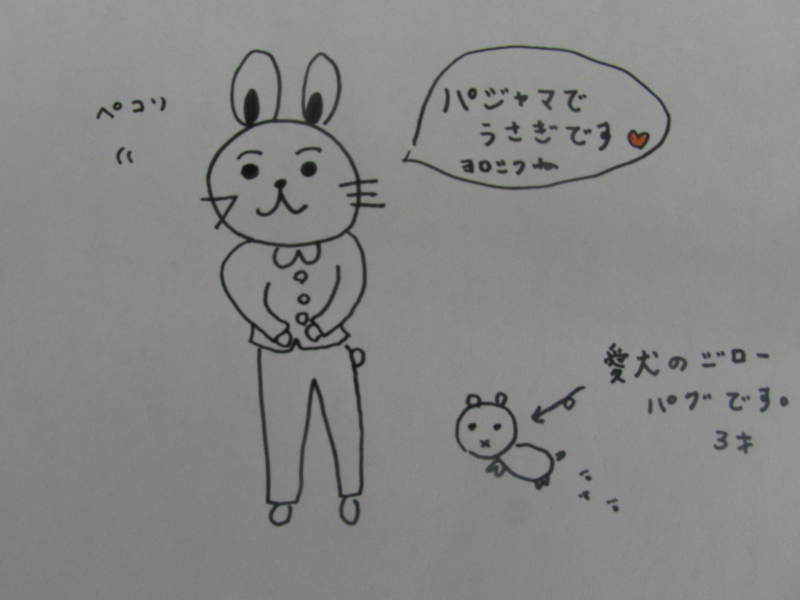 ペコリ
パジャマで
うさぎです
ヨロシクね
愛犬のジロー
パグです。
3才